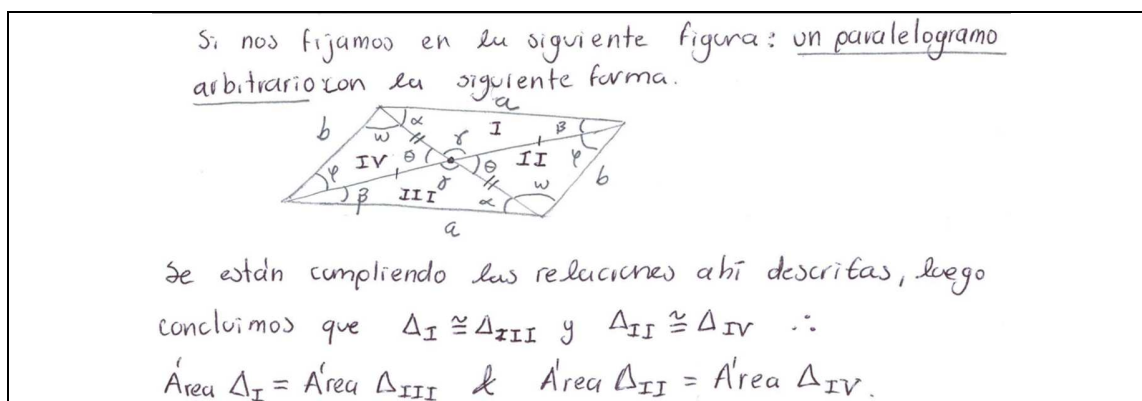 Si nos fijamos en la siguiente figura: un paralelogramo
arbitrario con la siguiente forma.
a
b α I β
ω γ
IV θ θ II φ
φ γ b
β III α ω
a
Se están cumpliendo las relaciones ahí descritas, luego
concluimos que Δ_I ≅ Δ_III y Δ_II ≅ Δ_IV ∴
Área Δ_I = Área Δ_III & Área Δ_II = Área Δ_IV.